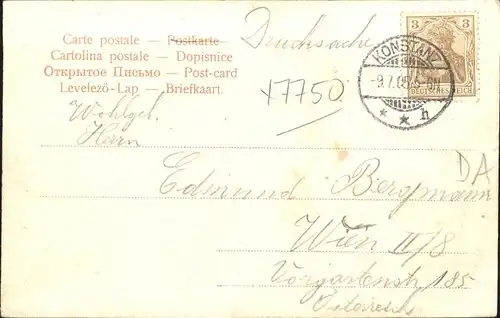 Carte postale — Postkarte
Cartolina postale — Dopisnice
Открытое Письмо — Post-card
Levelező-Lap — Briefkaart.
Drucksache
3 3
DEUTSCHES REICH
KONSTANZ
* * h
x7750
Wohlgeb.
Herrn
DA
Edmund Bergmann
Wien II/8
Vorgartenstr 185
Österreich